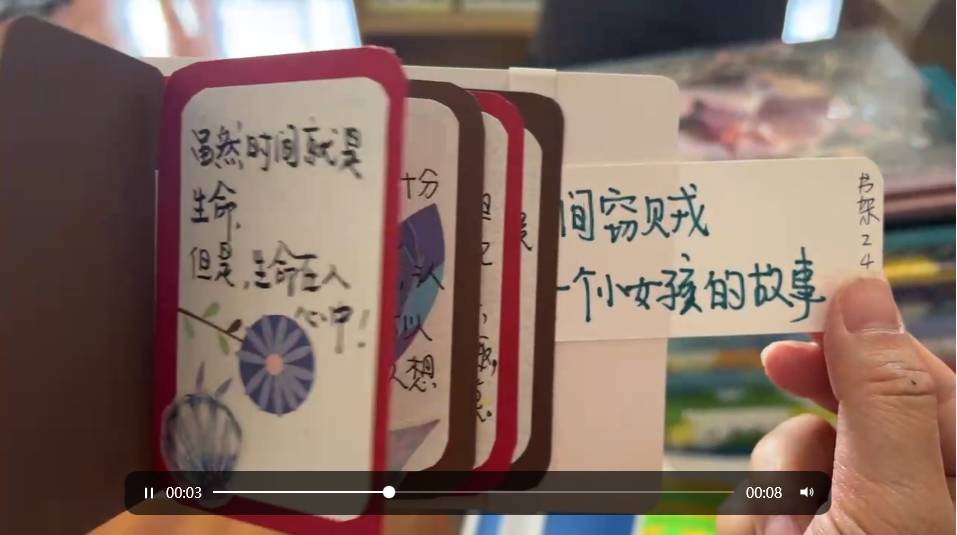 虽然时间就是
生命,
但是,生命在人
心中!
十分
,认
以
想
间窃贼戎
一个小女孩的故事
书架24
00:03
00:08